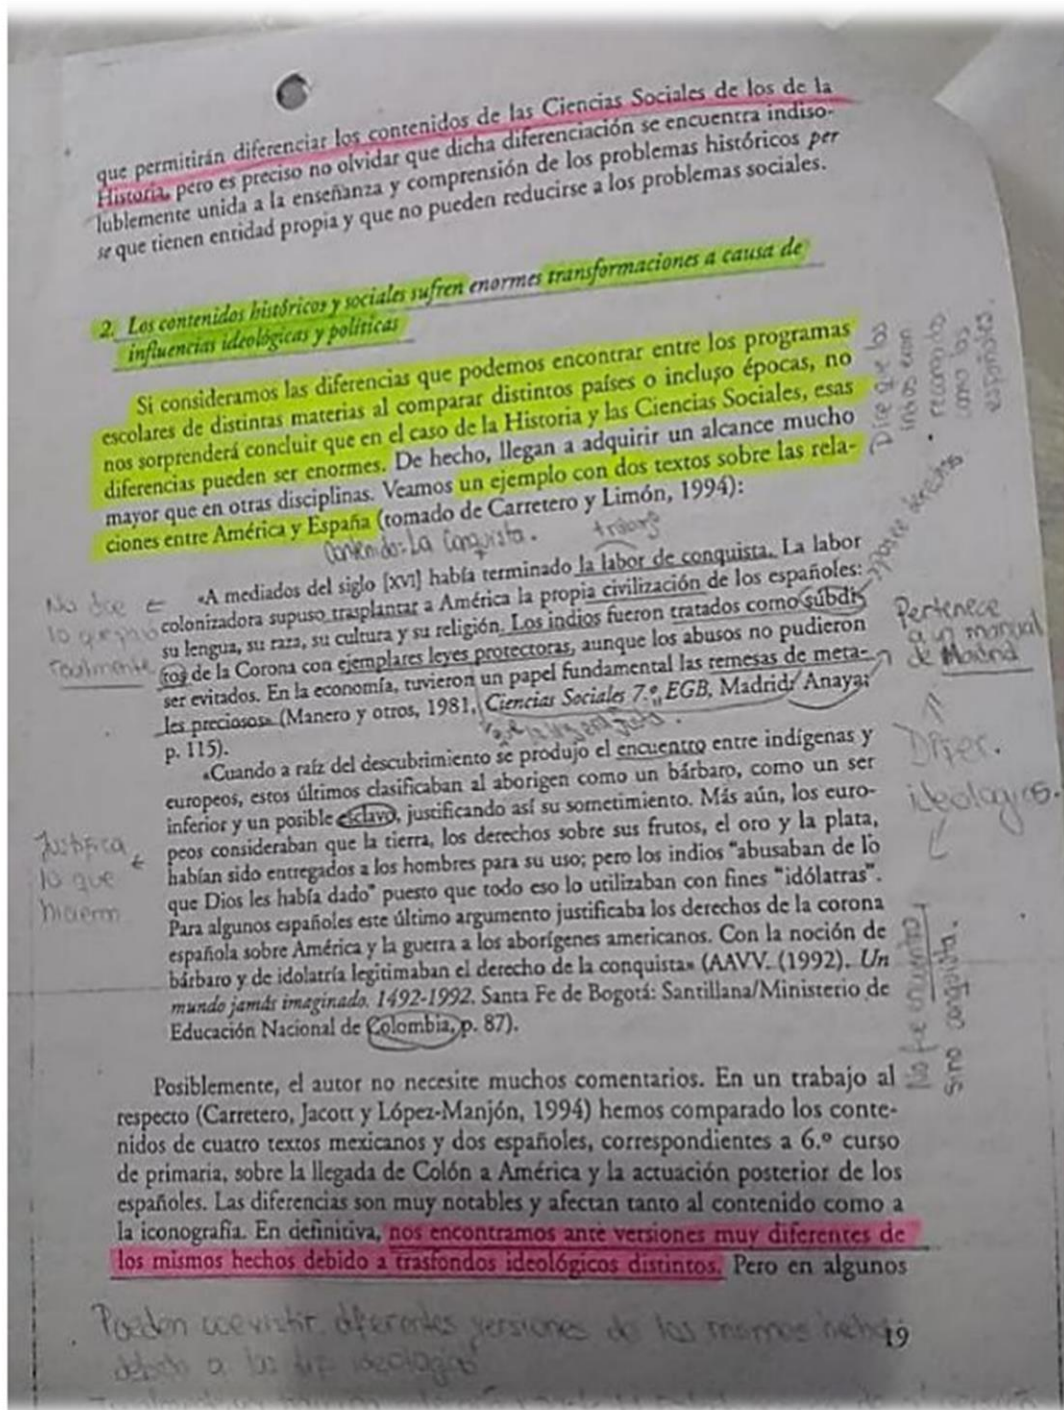 que permitirán diferenciar los contenidos de las Ciencias Sociales de los de la
Historia, pero es preciso no olvidar que dicha diferenciación se encuentra indiso-
lublemente unida a la enseñanza y comprensión de los problemas históricos per
se que tienen entidad propia y que no pueden reducirse a los problemas sociales.
2. Los contenidos históricos y sociales sufren enormes transformaciones a causa de
influencias ideológicas y políticas
Si consideramos las diferencias que podemos encontrar entre los programas
escolares de distintas materias al comparar distintos países o incluso épocas, no
nos sorprenderá concluir que en el caso de la Historia y las Ciencias Sociales, esas
diferencias pueden ser enormes. De hecho, llegan a adquirir un alcance mucho
mayor que en otras disciplinas. Veamos un ejemplo con dos textos sobre las rela-
ciones entre América y España (tomado de Carretero y Limón, 1994):
Dice que los
indios eran
reconocidos
como los
españoles.
Contenido: La Conquista.
trabajo
«A mediados del siglo [XVI] había terminado la labor de conquista. La labor
colonizadora supuso trasplantar a América la propia civilización de los españoles:
su lengua, su raza, su cultura y su religión. Los indios fueron tratados como súbdi-
tos de la Corona con ejemplares leyes protectoras, aunque los abusos no pudieron
ser evitados. En la economía, tuvieron un papel fundamental las remesas de meta-
les preciosos» (Manero y otros, 1981, Ciencias Sociales 7.º, EGB, Madrid: Anaya,
p. 115).
No dice
lo que pasó
realmente
derechos.
Pertenece
a un manual
de Madrid
Difer.
ideologias.
«Cuando a raíz del descubrimiento se produjo el encuentro entre indígenas y
europeos, estos últimos clasificaban al aborigen como un bárbaro, como un ser
inferior y un posible esclavo, justificando así su sometimiento. Más aún, los euro-
peos consideraban que la tierra, los derechos sobre sus frutos, el oro y la plata,
habían sido entregados a los hombres para su uso; pero los indios "abusaban de lo
que Dios les había dado" puesto que todo eso lo utilizaban con fines "idólatras".
Para algunos españoles este último argumento justificaba los derechos de la corona
española sobre América y la guerra a los aborígenes americanos. Con la noción de
bárbaro y de idolatría legitimaban el derecho de la conquista» (AAVV. (1992). Un
mundo jamás imaginado. 1492-1992. Santa Fe de Bogotá: Santillana/Ministerio de
Educación Nacional de Colombia, p. 87).
Justifica
lo que
hicieron
No fue encuentro
sino conquista.
Posiblemente, el autor no necesite muchos comentarios. En un trabajo al
respecto (Carretero, Jacott y López-Manjón, 1994) hemos comparado los conte-
nidos de cuatro textos mexicanos y dos españoles, correspondientes a 6.º curso
de primaria, sobre la llegada de Colón a América y la actuación posterior de los
españoles. Las diferencias son muy notables y afectan tanto al contenido como a
la iconografía. En definitiva, nos encontramos ante versiones muy diferentes de
los mismos hechos debido a trasfondos ideológicos distintos. Pero en algunos
Pueden coexistir diferentes versiones de los mismos hechos
debido a las dif ideologias
19